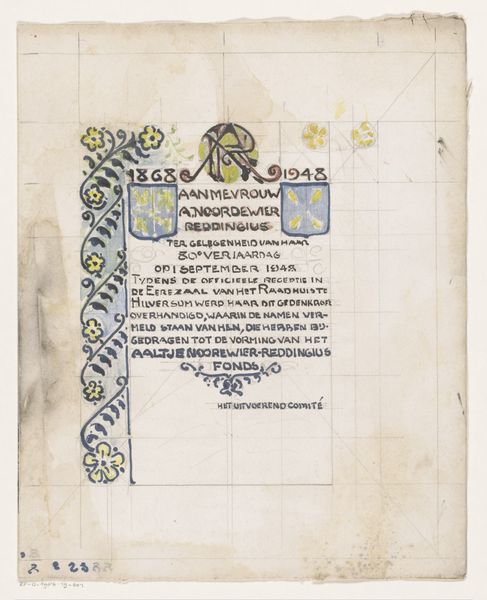 AR
1868 1948
AAN MEVROUW
A. NOORDEWIER
REDDINGIUS
TER GELEGENHEID VAN HAAR
80e VERJAARDAG
OP 1 SEPTEMBER 1948
TYDENS DE OFFICIEELE RECEPTIE IN
DE EEREZAAL VAN HET RAADHUIS TE
HILVERSUM WERD HAAR DIT GEDENKBOEK
OVERHANDIGD, WAARIN DE NAMEN VER-
MELD STAAN VAN HEN, DIE HEBBEN BIJ-
GEDRAGEN TOT DE VORMING VAN HET
AALTJE NOOREWIER-REDDINGIUS
FONDS.
HET UITVOEREND COMITÉ